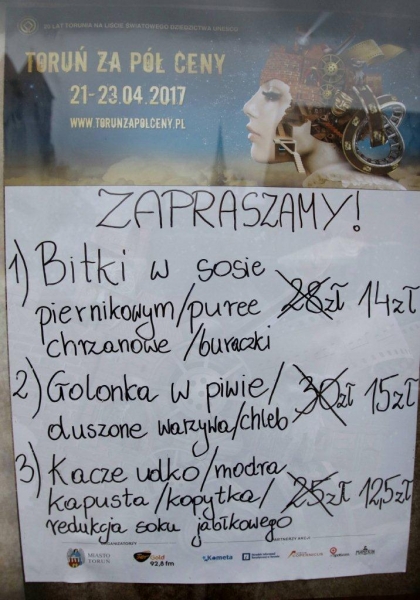 20 LAT TORUNIA NA LIŚCIE ŚWIATOWEGO DZIEDZICTWA UNESCO
TORUŃ ZA PÓŁ CENY
21-23.04.2017
WWW.TORUNZAPOLCENY.PL
ZAPRASZAMY!
1) Bitki w sosie
piernikowym/puree 28zł 14zł
chrzanowe/buraczki
2) Golonka w piwie/ 30zł 15zł
duszone warzywa/chleb
3) Kacze udko/modra
kapusta/kopytka/ 25zł 12,5zł
redukcja soku jabłkowego
ORGANIZATORZY
PARTNERZY AKCJI
MIASTO
TORUŃ
Gold
92,8 fm
Kometa